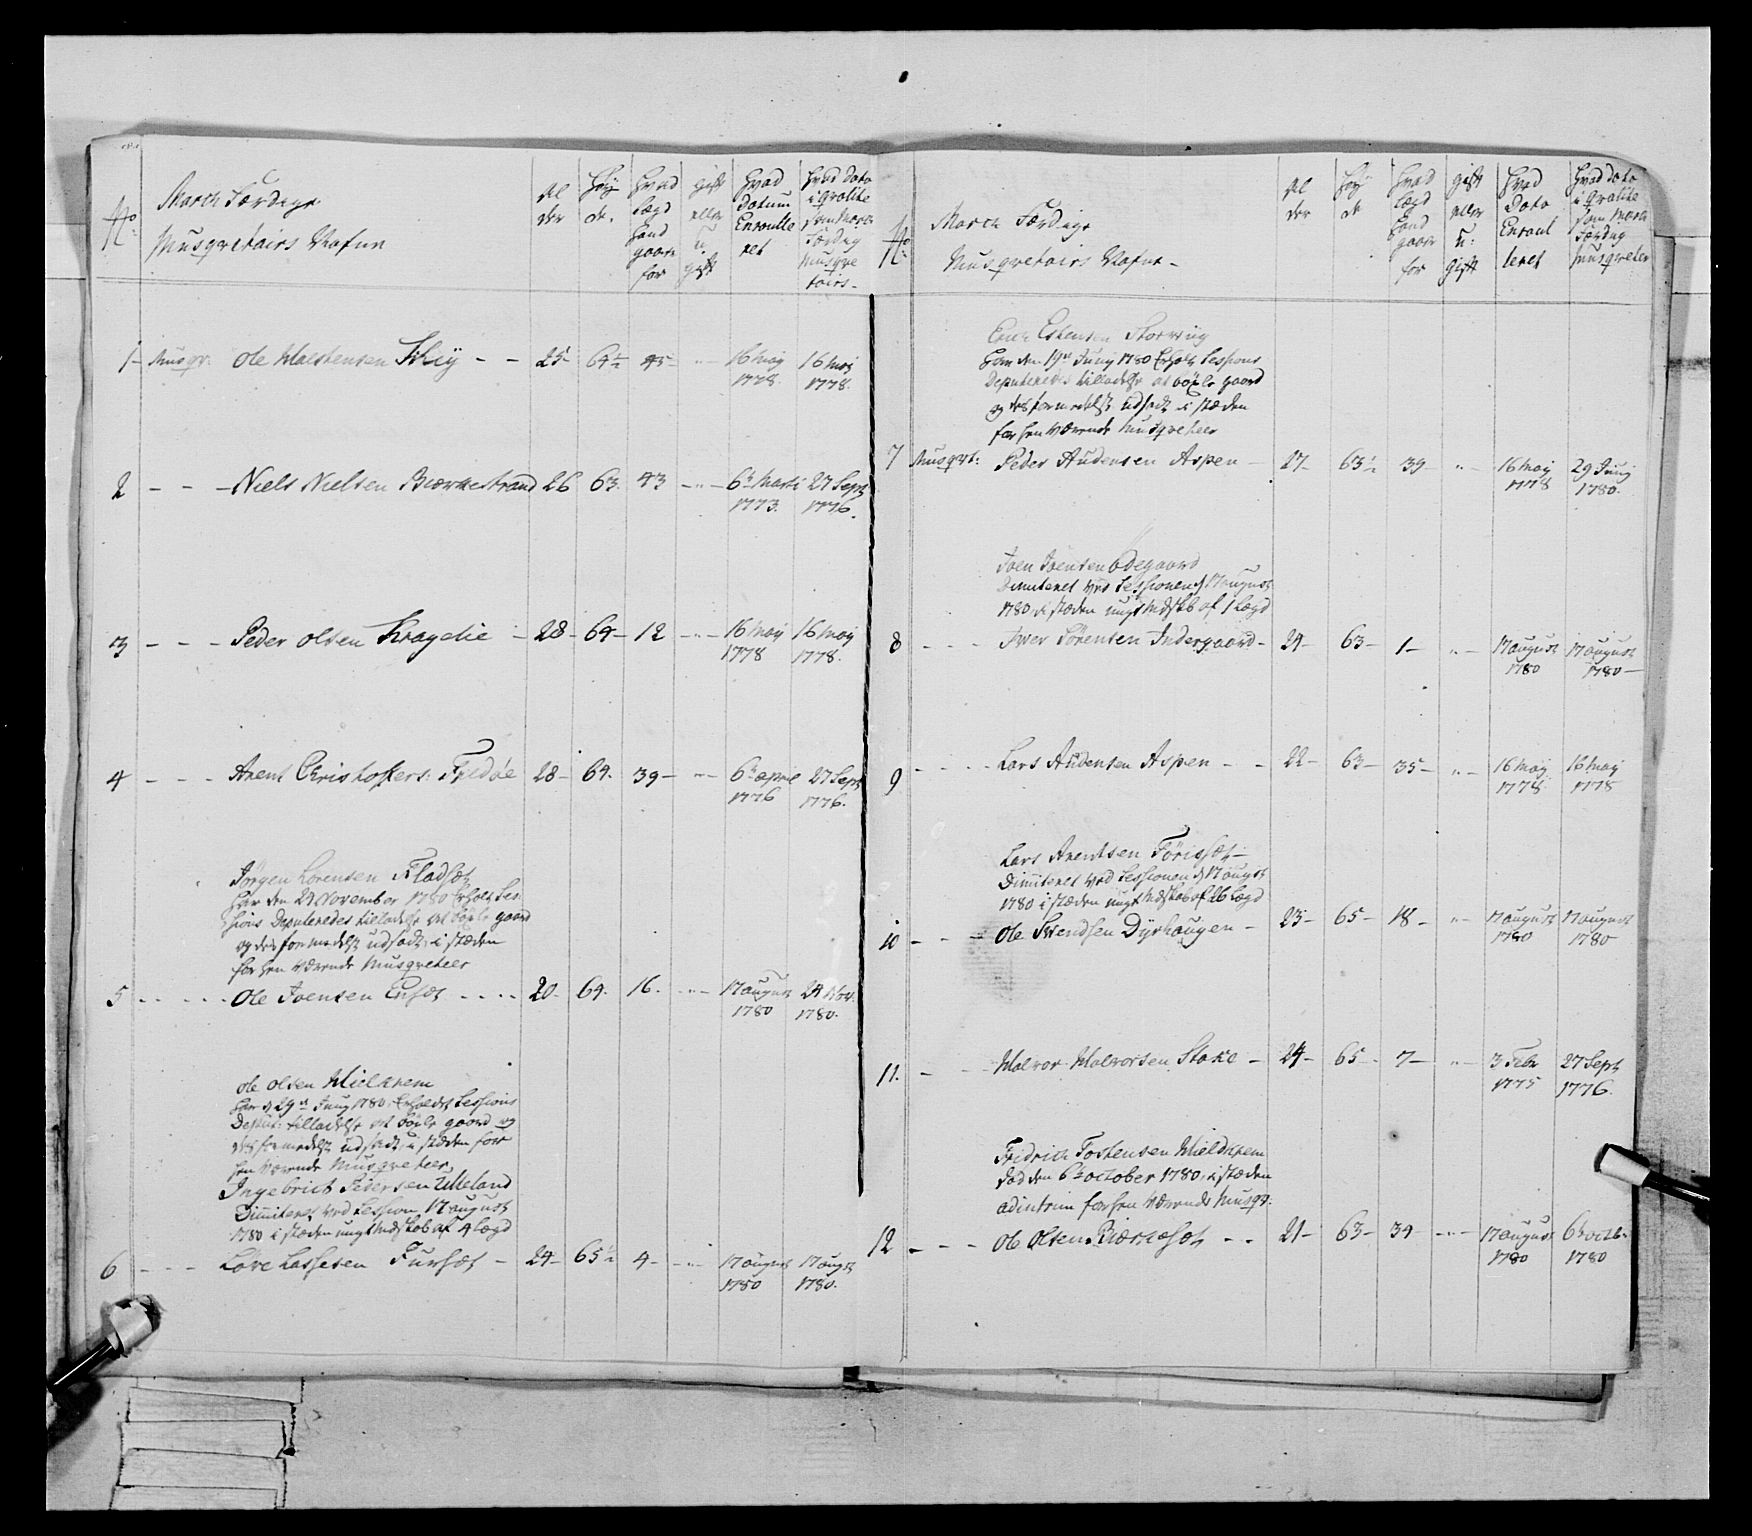 No
March Færdige
Musqvetairs Nafne
Al
der
Høy
de.
hvad
Lægd
hand
gaar
for
gift
eller
u
gift
hvad
Datum
Enroulle
ret
hvad Dato
i qvalite
som March
Færdig
Musqve
tairs
1 Musqr. Ole Halstensen Skiy 25 64½ 45 " 16 Maij 1778. 16 Maij 1778.
2 Niels Nielsen Biærnestrand 26 63. 43 " 6te Marti 1773. 27 Sept 1776.
3 Peder Olsen Kragelie 28 64 12 " 16 Maij 1778 16 Maij 1778.
4 Arent Christoffers: Fredøe 28 64. 39 " 6te april 1776 27 Sept 1776.
Jørgen Lorensen Fladset
har den 24 November 1780 Erholt Ses-
sions Deputeredes tilladelse at böxle gaard
og des formedelst udsadt, i stæden
for hen værende Musqveteer
5 Ole Joensen Enset 20. 64. 16. " 17 august 1780 24 Nov. 1780.
Ole Olsen Mielknem
har d 29de Junij 1780 Erholdt Sessions
Deput: tilladelse at böxle gaard og
des formedelst udsadt, i stæden for
hen værende Musqveteer
Ingebrict Pedersen Ulleland
Dimiteret ved Session 17 august
1780 i stæden ungt Mdskab af 4 Lægd
6 Lasse Lassesen Furset 24 65½ 4 " 17 august 1780 17 augst 1780.
No
March Færdige
Musqvetairs Nafne
Al
der
Høy
de
hvad
Lægd
hand
gaar
for
gift
eller
u:
gift
hvad
Dato
Enroul
leret
hvad Dato
i qvalite
som March
Færdig
Musqveter
Estensen
har den 19de Junij 1780 Erholt Sessions
Deputeredes tilladelse at böxle gaard
og des formedelst udsadt i stæden
for hen værende Musqveteer
7 Musqvt: Peder Audensen Aspen 27 63½ 39 " 16 Maij 1778 29 Junij 1780.
Joen Joensen Ødegaard
Dimiteret ved Sessionen d 17 august
1780, i stæden ungt Mdskb af 1 Lægd
8 Iver Sörensen Indergaard 24 63 1 " 17 august 1780 17 august 1780
9 Lars Audensen Aspen 22 63 35 " 16 Maij 1778 16 Maij 1778
Lars Arentsen Förisset
Dimiteret ved Sessionen d 17 augst
1780 i stæden ungt Mdskab af 26 Lægd
10 Ole Svendsen Dyrhaugen 23 65 18 " 17 august 1780 17 august 1780
11. Halvor Halvorsen Stoke 24 65 7 " 3 Febr 1775 27 Sept 1776.
Fridrich Tostensen Mieldknem
död den 6te october 1780, i stæden
adintrim for hen værende Musqr:
12 Ole Olsen Biærneset 21 63 34 " 17 august 1780 6te octb. 1780